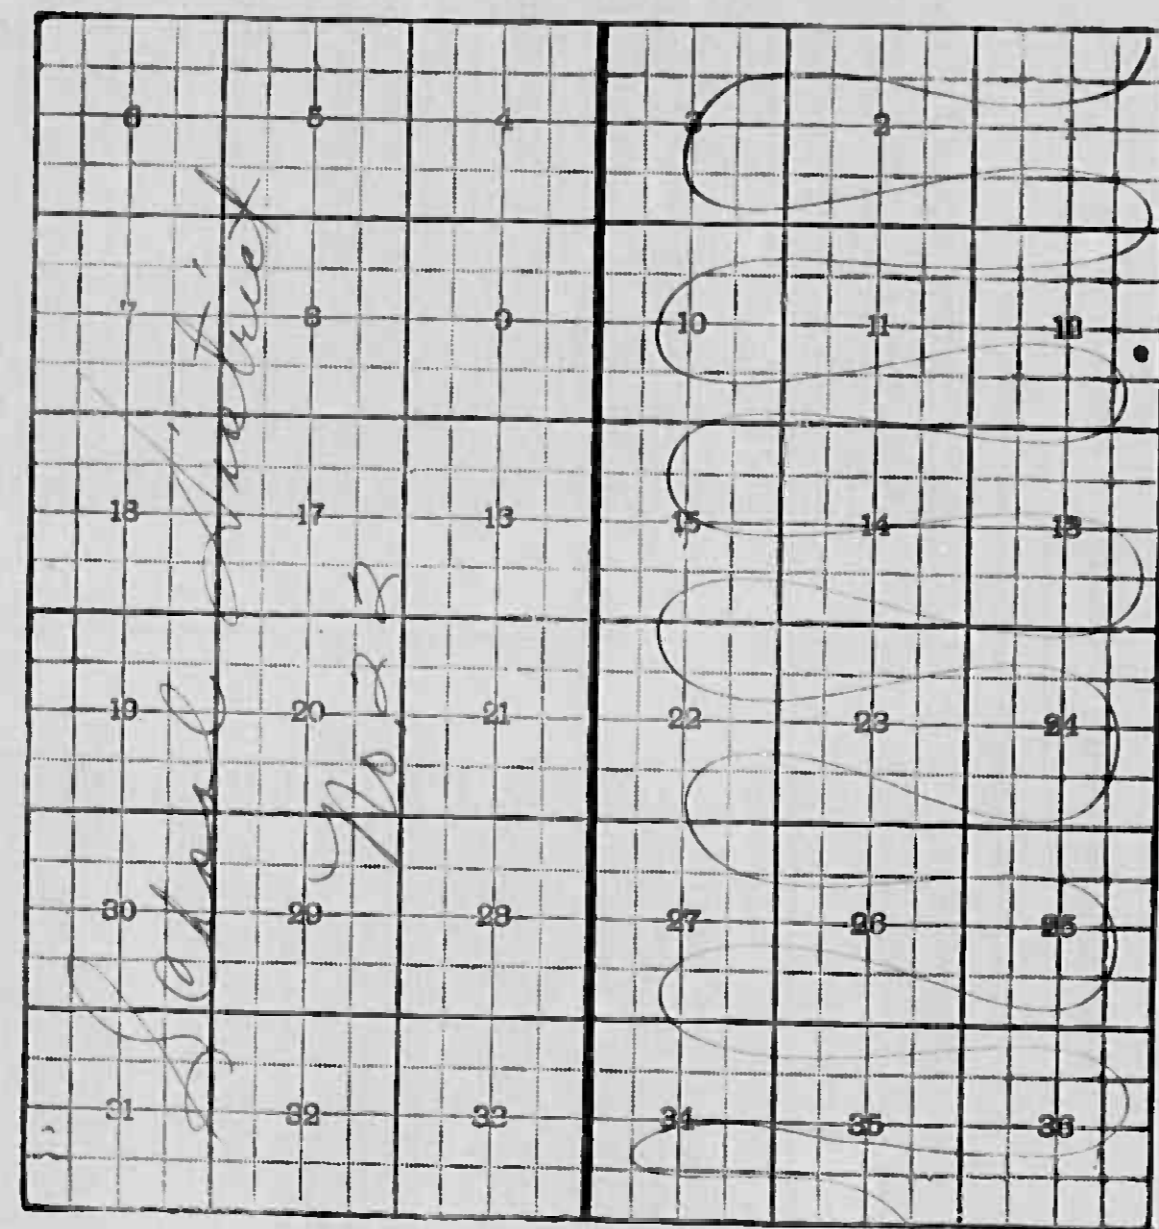 6 5 4 3 2 1
7 8 9 10 11 12
18 17 16 15 14 13
19 20 21 22 23 24
30 29 28 27 26 25
31 32 33 34 35 36
School District
No. 22